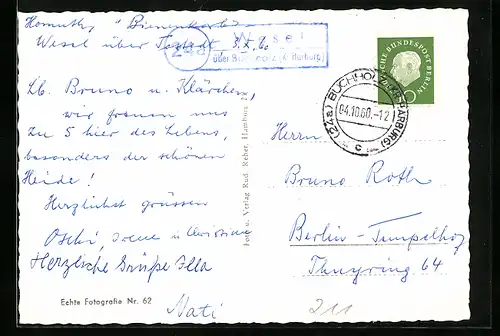 Homuth, "Bienenkorb"
Wesel über Tostedt 3.X.60
24a Wesel
über Buchholz (Kr. Harburg)
DEUTSCHE BUNDESPOST BERLIN
(24a) BUCHHOLZ (KR HARBURG)
04.10.60.-12
c
Lb. Bruno u. Klärchen,
wir freuen uns
zu 5 hier des Lebens,
besonders der schönen
Heide!
Herzlichst grüssen
Irene u.
Herzliche Grüße Illa
Nati
Echte Fotografie Nr. 62
Foto u. Verlag Rud. Reher, Hamburg
Herrn
Bruno Roth
Berlin-Tempelhof
Thuyring 64
211